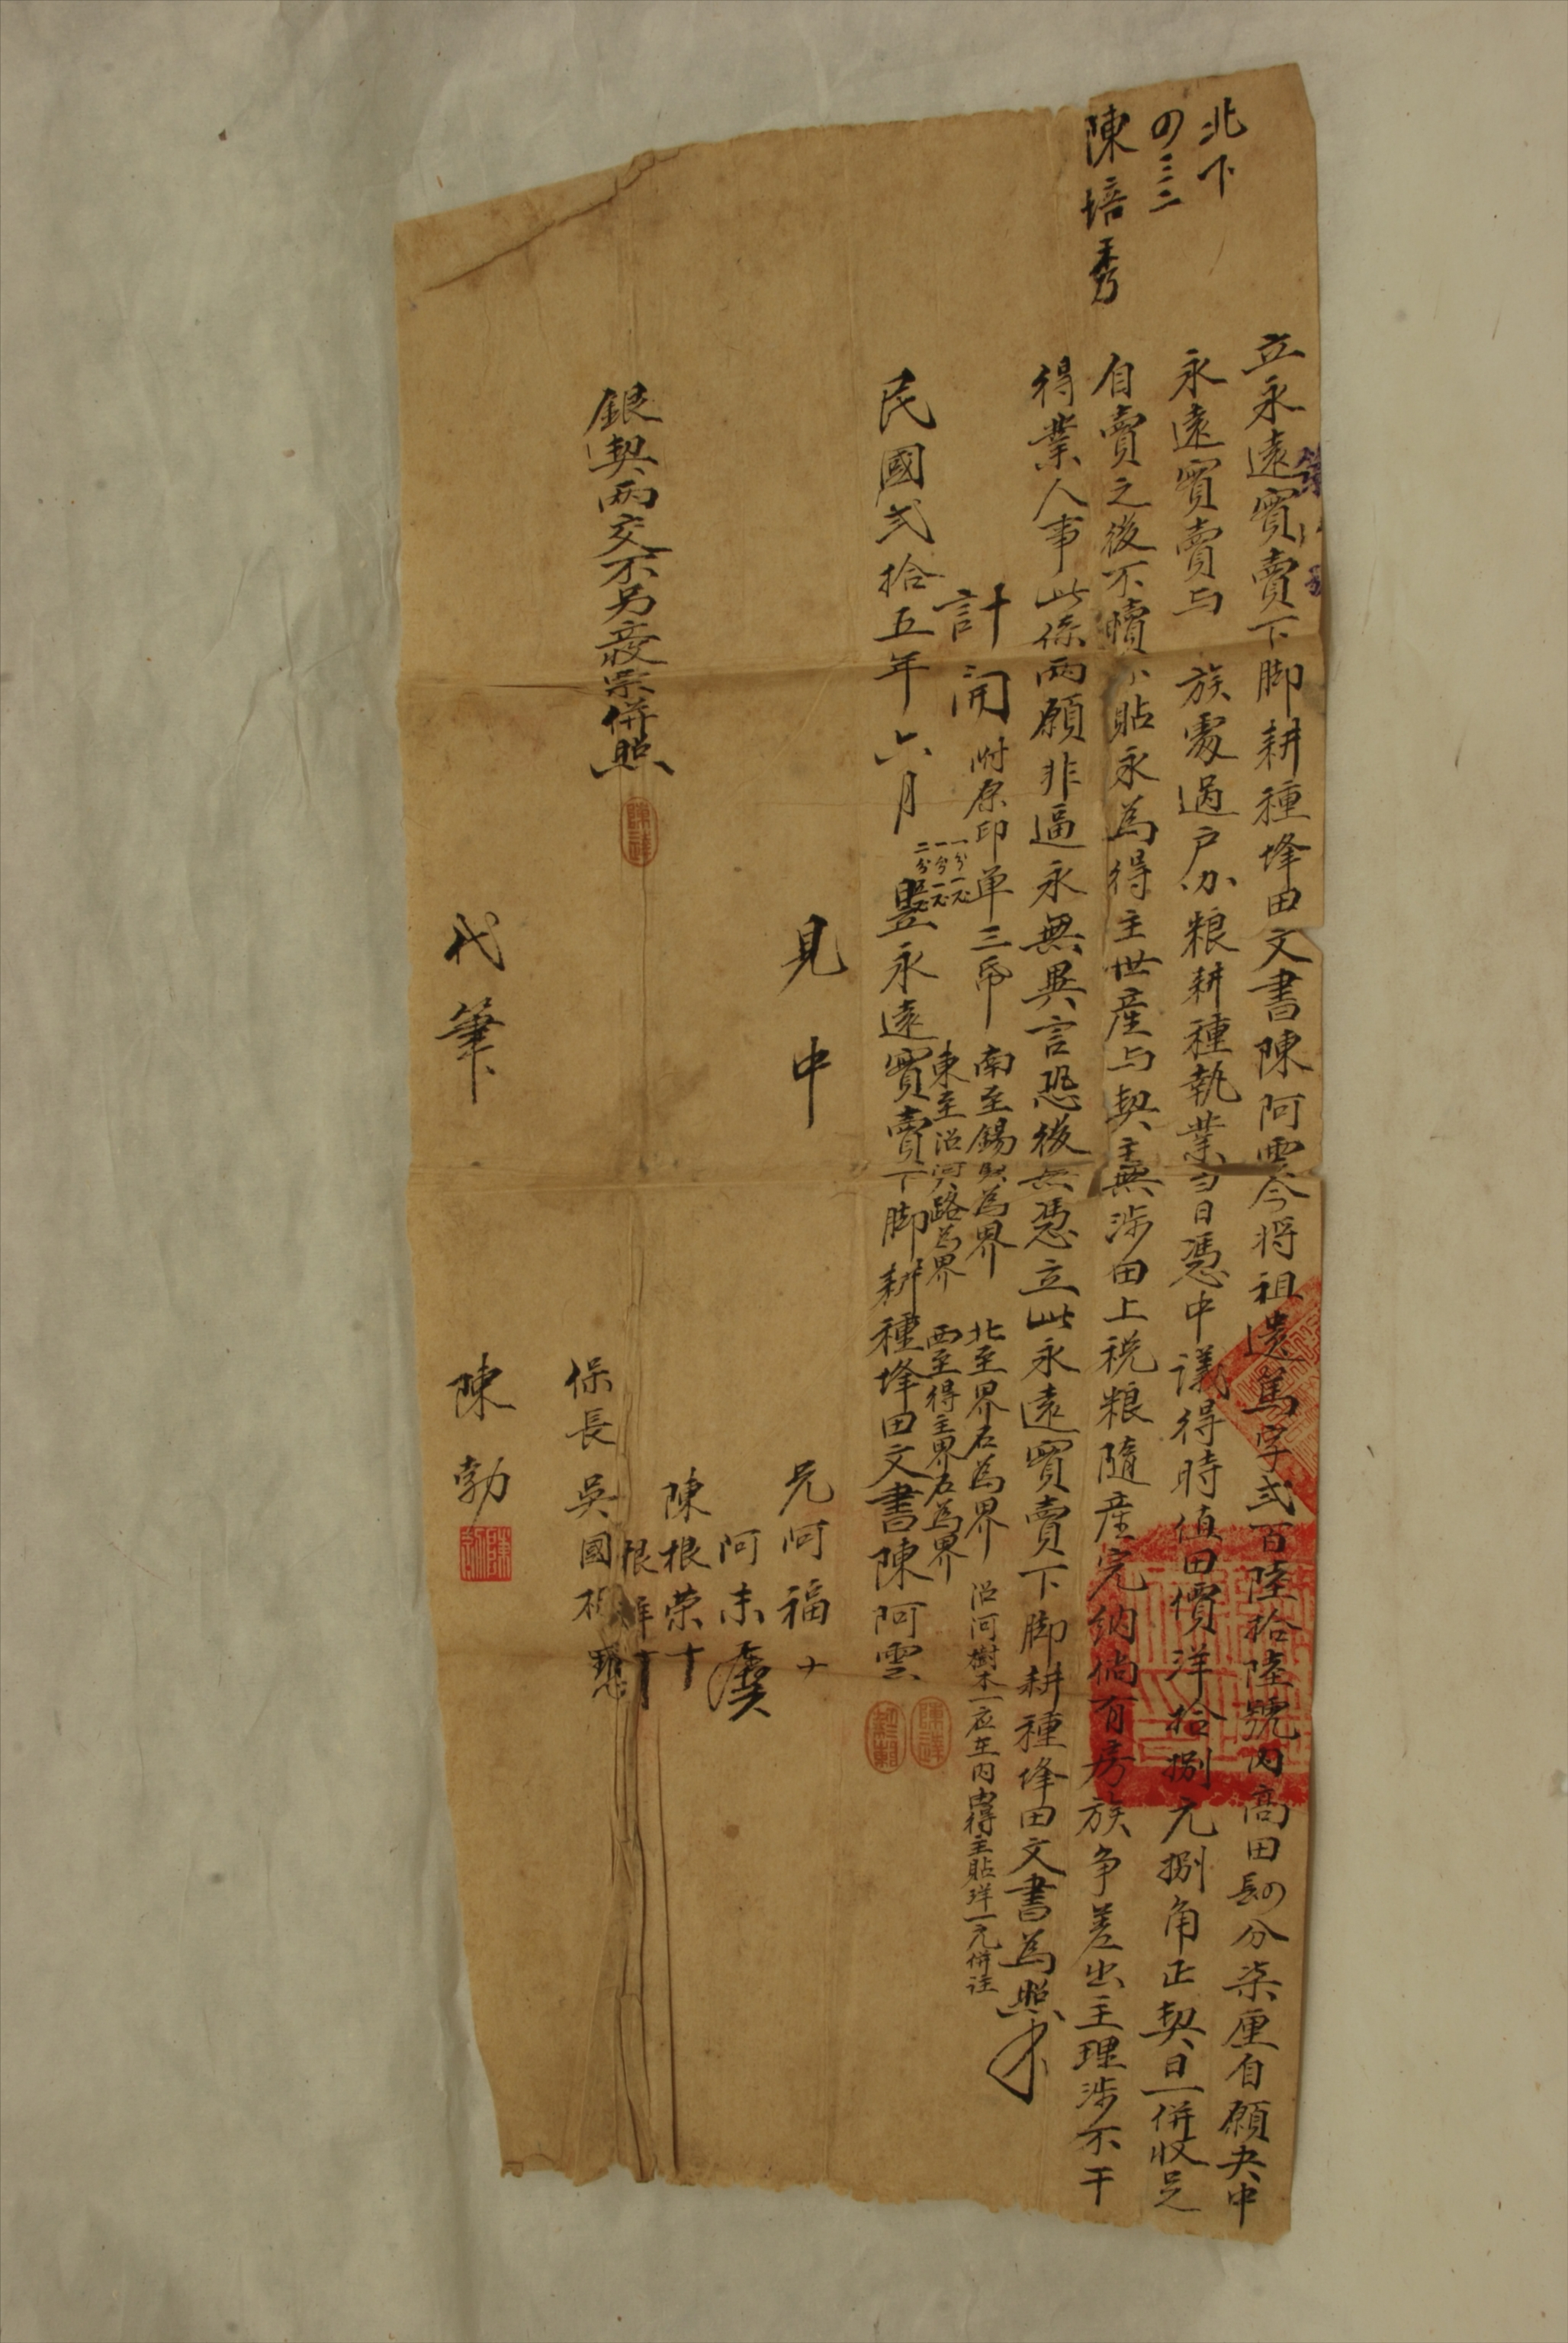 北下
の三二
陳培秀
立永遠賣下脚耕種埄田文書陳阿雲今將祖遺篤字弍百陸拾陸號內高田の分柒厘自願央中
永遠賣與族處過户办粮耕種執業当日憑中議得時值田價洋拾捌元捌角正契日一併收足
自賣之後不贖不貼永為得主世產与契主無涉田上税粮隨產完納倘有房族争差出主理涉不干
得業人事此係兩願非逼永無異言恐後無憑立此永遠賣下脚耕種埄田文書為照
計開 附原印单三帋 南至錫為界 北至界石為界 沿河樹木一应在內由得主貼洋一元併註
東至沿河路為界 西至得主界石為界
民國弍拾五年六月 立永遠賣下脚耕種埄田文書陳阿雲
見中 兄阿福十
阿未
陳根荣十
根祥十
銀契兩交不另立收票併照
保長 吳國
代筆 陳勃